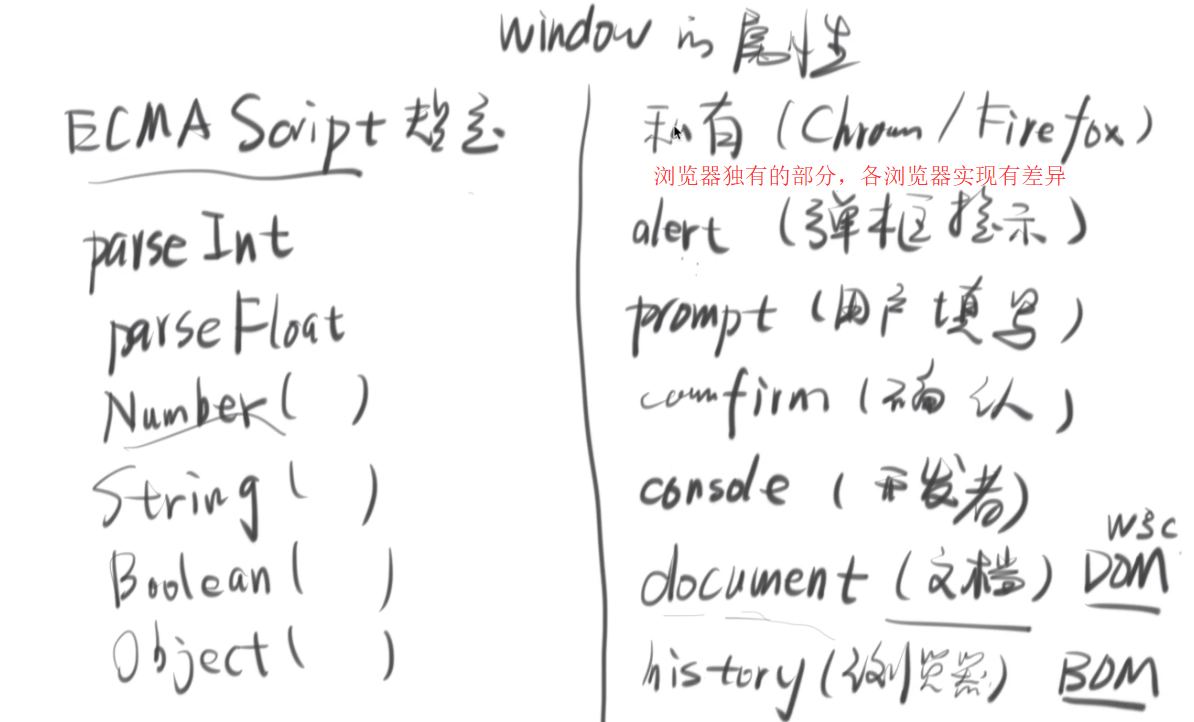 window 的 属性
ECMA Script 规定
parseInt
parseFloat
Number( )
String( )
Boolean( )
Object( )
私有 (Chrom / Firefox)
浏览器独有的部分，各浏览器实现有差异
alert (弹框提示)
prompt (用户填写)
comfirm (确认)
console (开发者)
W3C
document (文档) DOM
history (浏览器) BOM